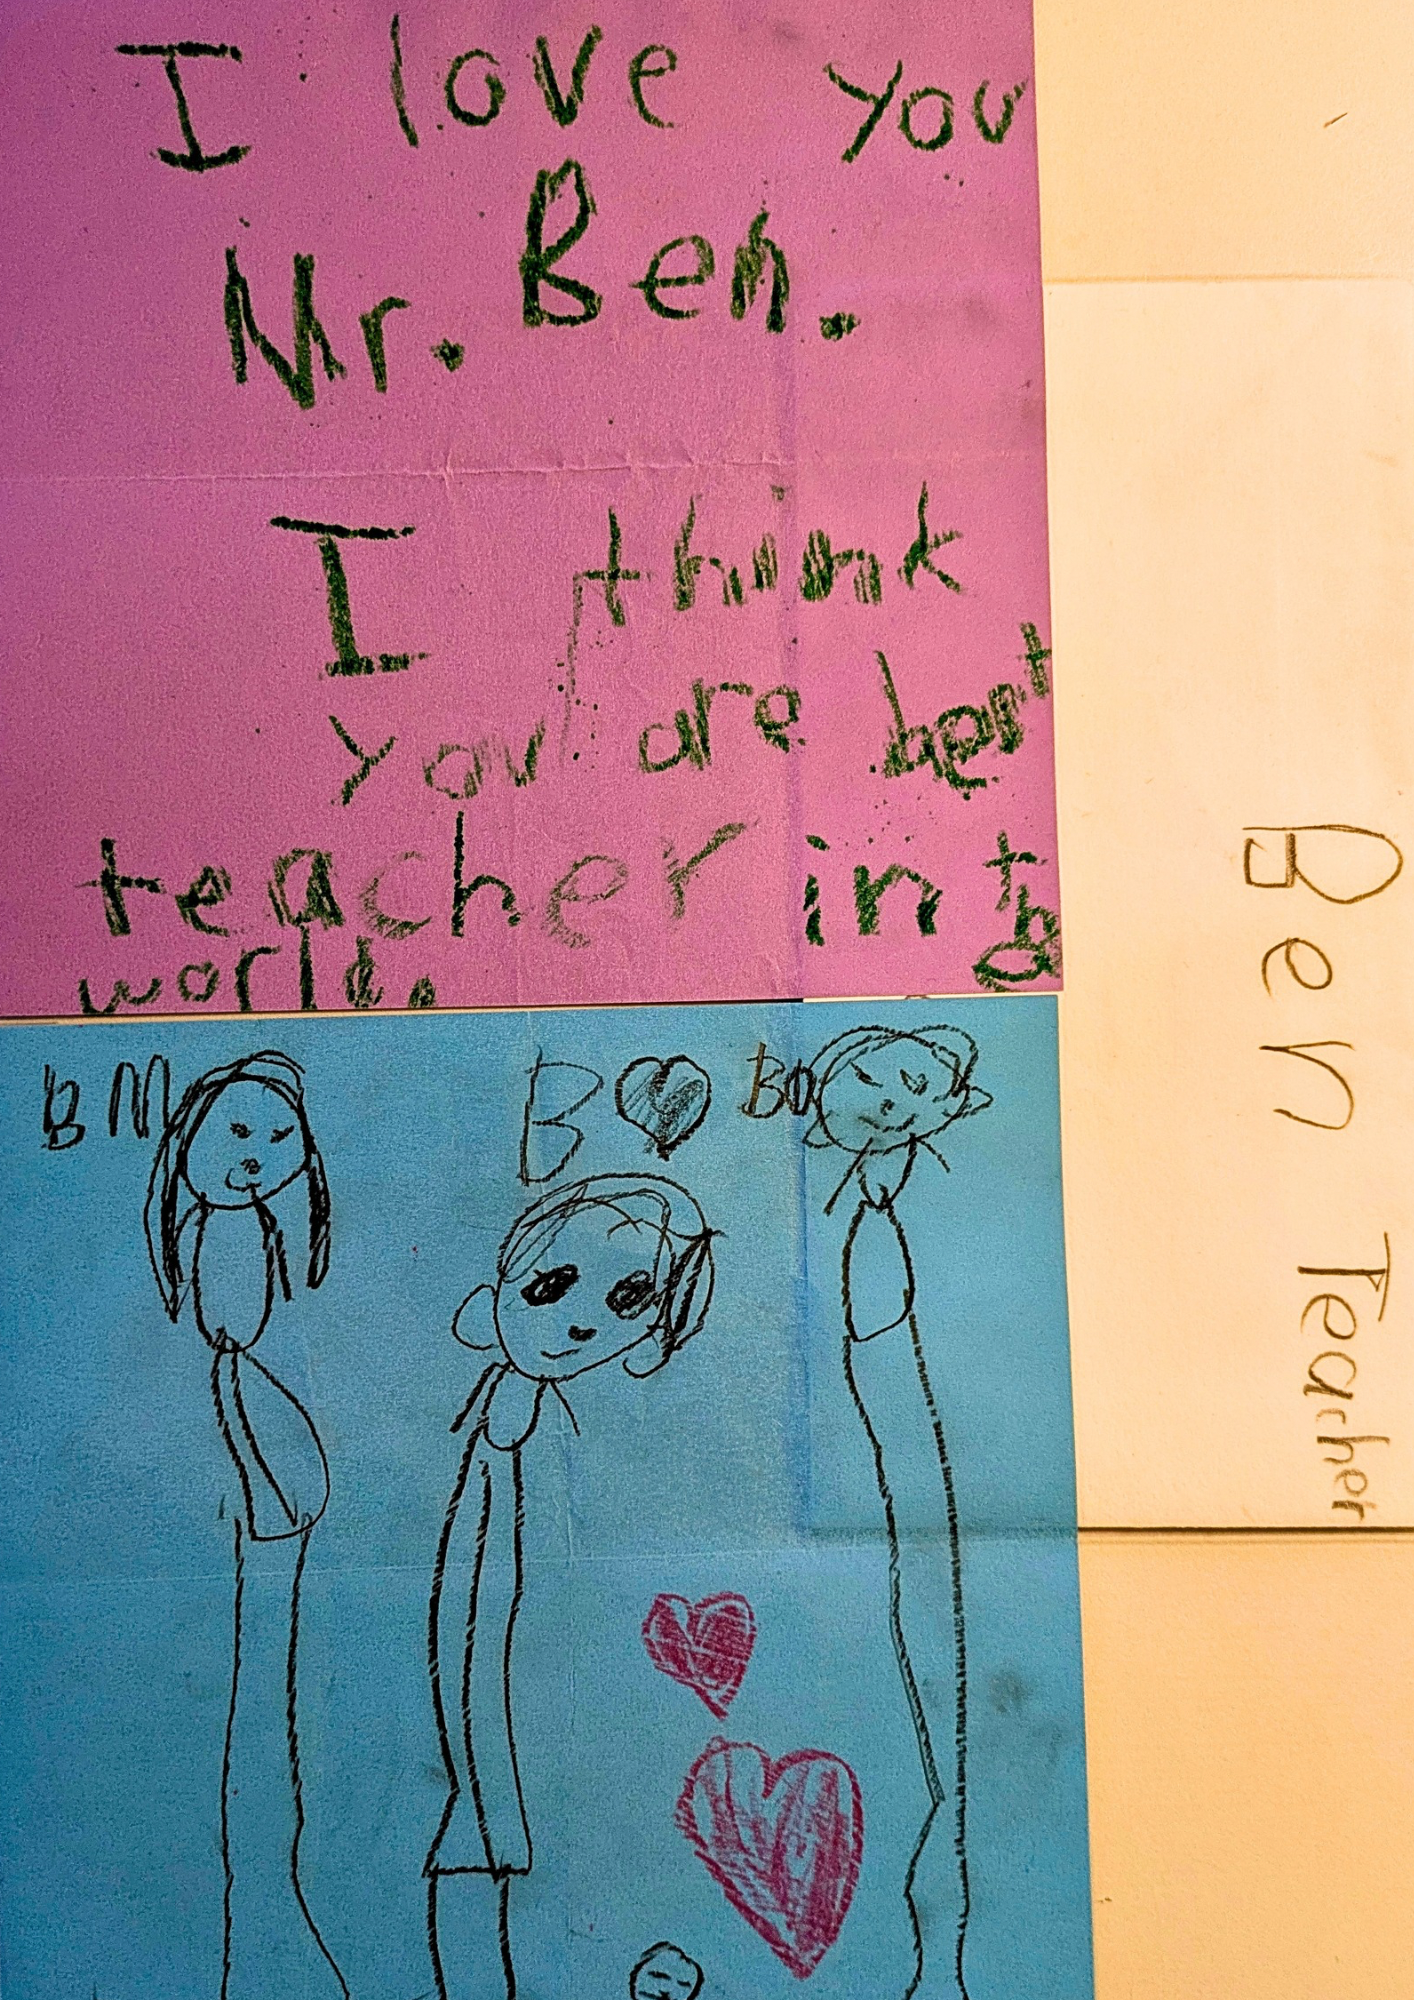 I love you
Mr. Ben.
I think
you are best
teacher in the
world.
BM
B
BD
Ben Teacher